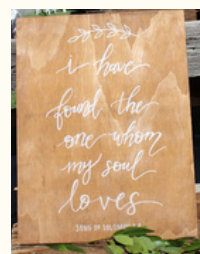 i have
found the
one whom
my soul
loves
SONG OF SOLOMON